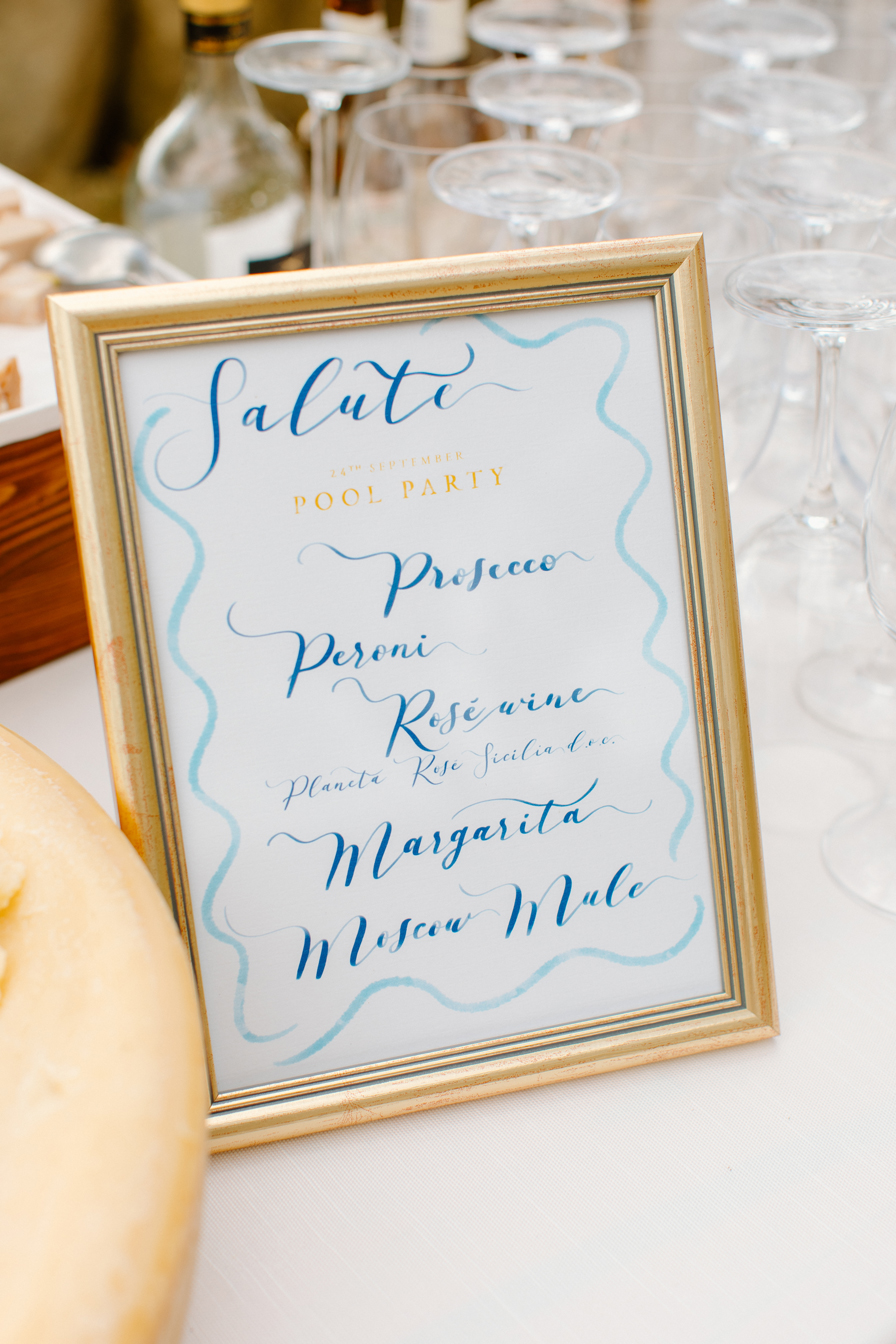 Salute
24TH SEPTEMBER
POOL PARTY
Prosecco
Peroni
Rosé wine
Planeta Rosé Sicilia d.o.c.
Margarita
Moscow Mule